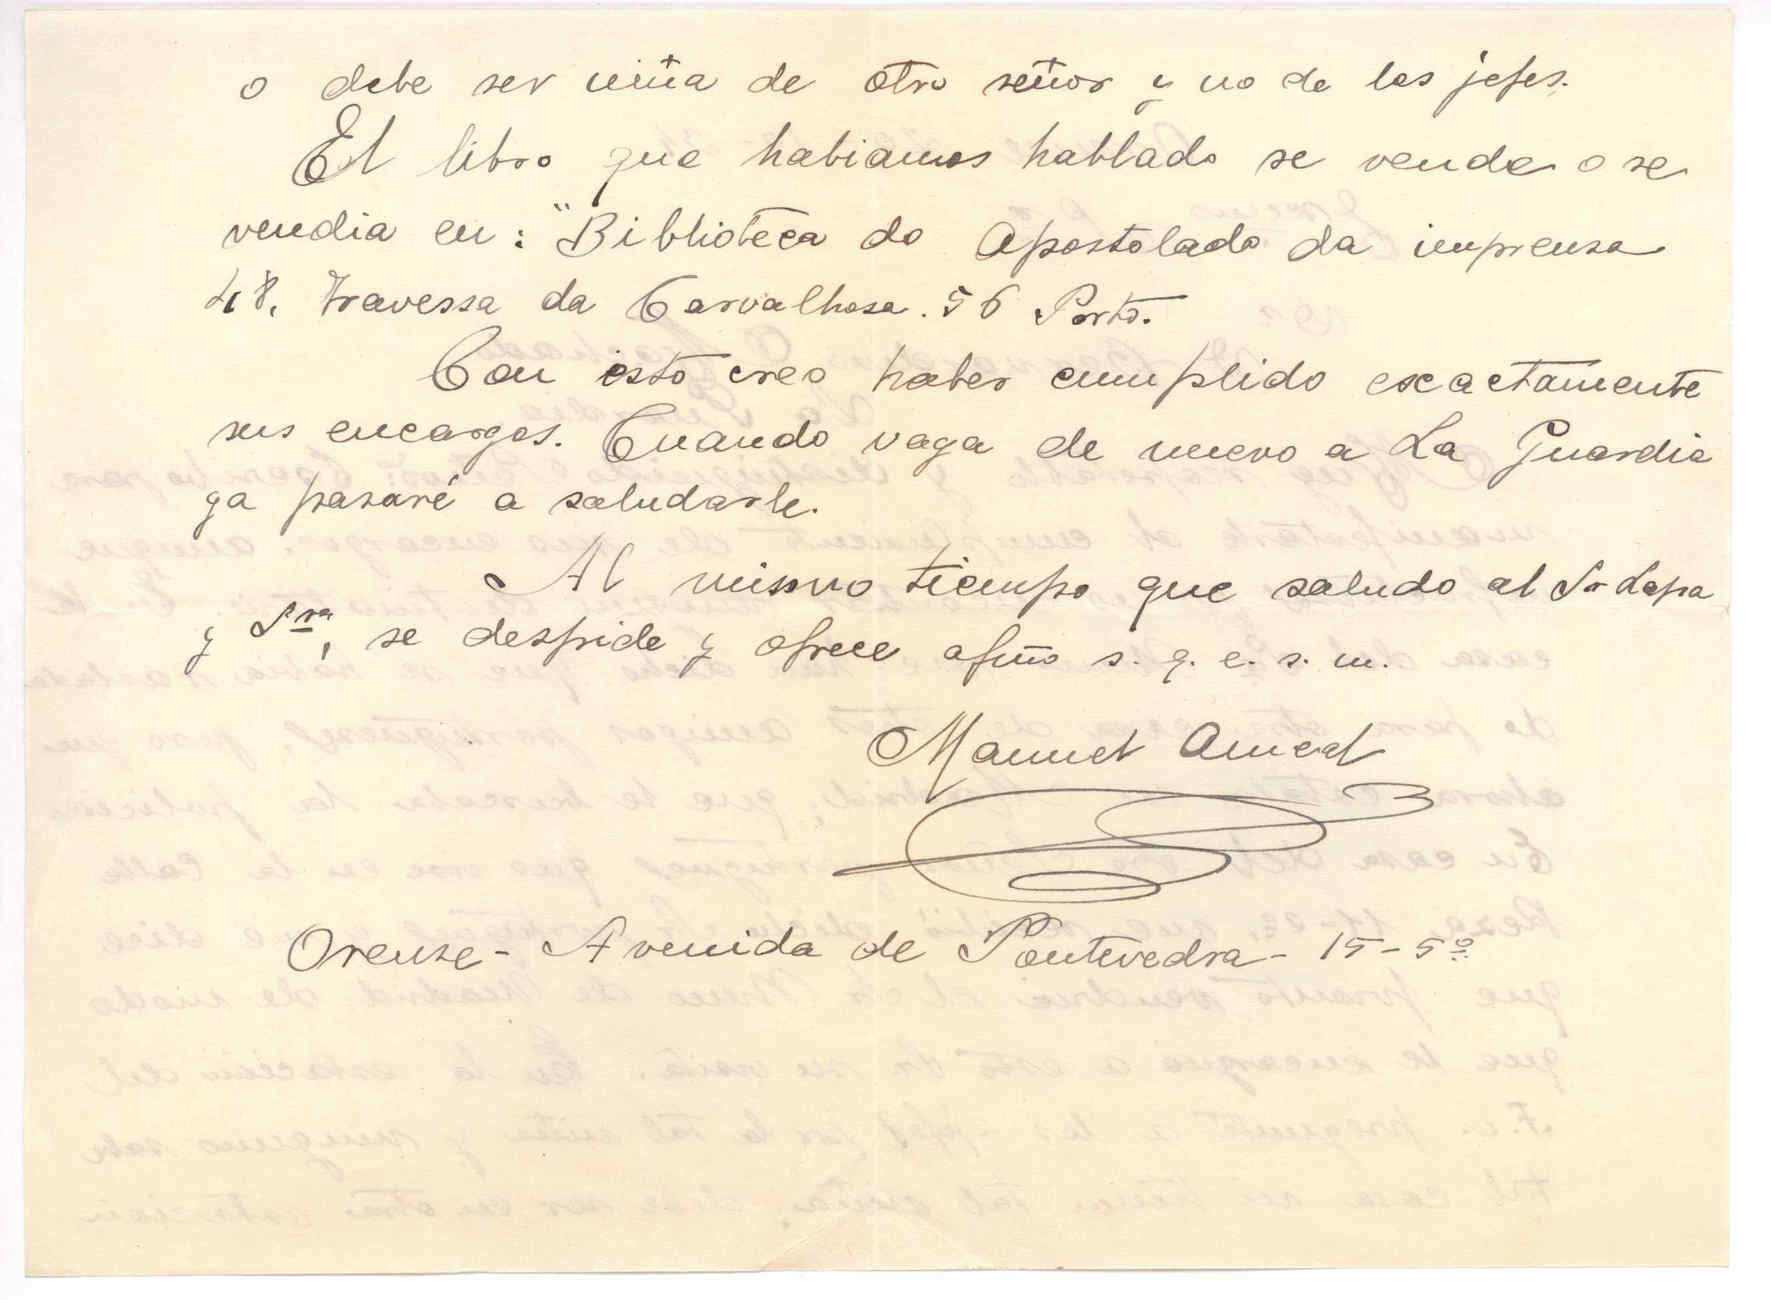 o debe ser niña de otro señor y no de los jefes.
El libro que habiamos hablado se vende o se
vendia en: "Biblioteca do Apostolado da imprensa
48, Travessa da Carvalhosa. 56 Porto.
Con isto creo haber cumplido exactamente
sus encargos. Cuando vaga de nuevo a La Guardia
ya pasaré a saludarle.
Al mismo tiempo que saludo al Sr Lapa
y Sra, se despide y ofrece afmo s. q. e. s. m.
Manuel
Orense - Avenida de Pontevedra - 15 - 5º